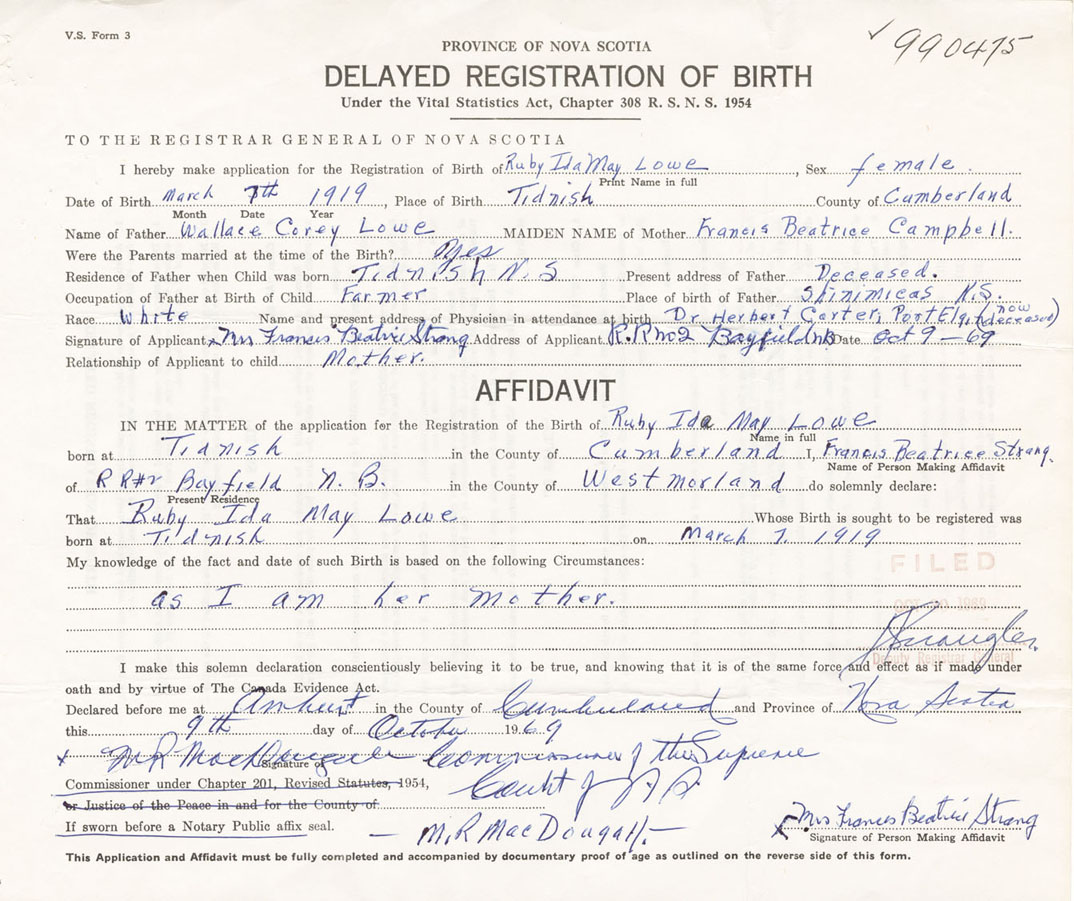 V.S. Form 3
✓ 990475
PROVINCE OF NOVA SCOTIA
DELAYED REGISTRATION OF BIRTH
Under the Vital Statistics Act, Chapter 308 R. S. N. S. 1954
TO THE REGISTRAR GENERAL OF NOVA SCOTIA
I hereby make application for the Registration of Birth of Ruby Ida May Lowe, Sex female
Print Name in full
Date of Birth March 7th 1919, Place of Birth Tidnish County of Cumberland
Month Date Year
Name of Father Wallace Corey Lowe MAIDEN NAME of Mother Francis Beatrice Campbell.
Were the Parents married at the time of the Birth? yes
Residence of Father when Child was born Tidnish N.S Present address of Father Deceased.
Occupation of Father at Birth of Child Farmer Place of birth of Father Shinimicas N.S.
Race White Name and present address of Physician in attendance at birth Dr. Herbert Carter, Port Elgin (now deceased)
Signature of Applicant x Mrs Francis Beatrice Strang Address of Applicant R.R no2 Bayfield NB Date Oct 9 - 69
Relationship of Applicant to child Mother.
AFFIDAVIT
IN THE MATTER of the application for the Registration of the Birth of Ruby Ida May Lowe
Name in full
born at Tidnish in the County of Cumberland I, Francis Beatrice Strang.
Name of Person Making Affidavit
of R R#2 Bayfield N. B. in the County of Westmorland do solemnly declare:
Present Residence
That Ruby Ida May Lowe Whose Birth is sought to be registered was
born at Tidnish on March 7. 1919
My knowledge of the fact and date of such Birth is based on the following Circumstances:
FILED
as I am her Mother.
1969
Deputy Registrar General
I make this solemn declaration conscientiously believing it to be true, and knowing that it is of the same force and effect as if made under
oath and by virtue of The Canada Evidence Act.
Declared before me at Amherst in the County of Cumberland and Province of Nova Scotia
this 9th day of October 1969
x M R MacDougall Commissioner of the Supreme
Signature of
Commissioner under Chapter 201, Revised Statutes, 1954, Court of N S
or Justice of the Peace in and for the County of
If sworn before a Notary Public affix seal. — M.R MacDougall — x Mrs Francis Beatrice Strang
Signature of Person Making Affidavit
This Application and Affidavit must be fully completed and accompanied by documentary proof of age as outlined on the reverse side of this form.